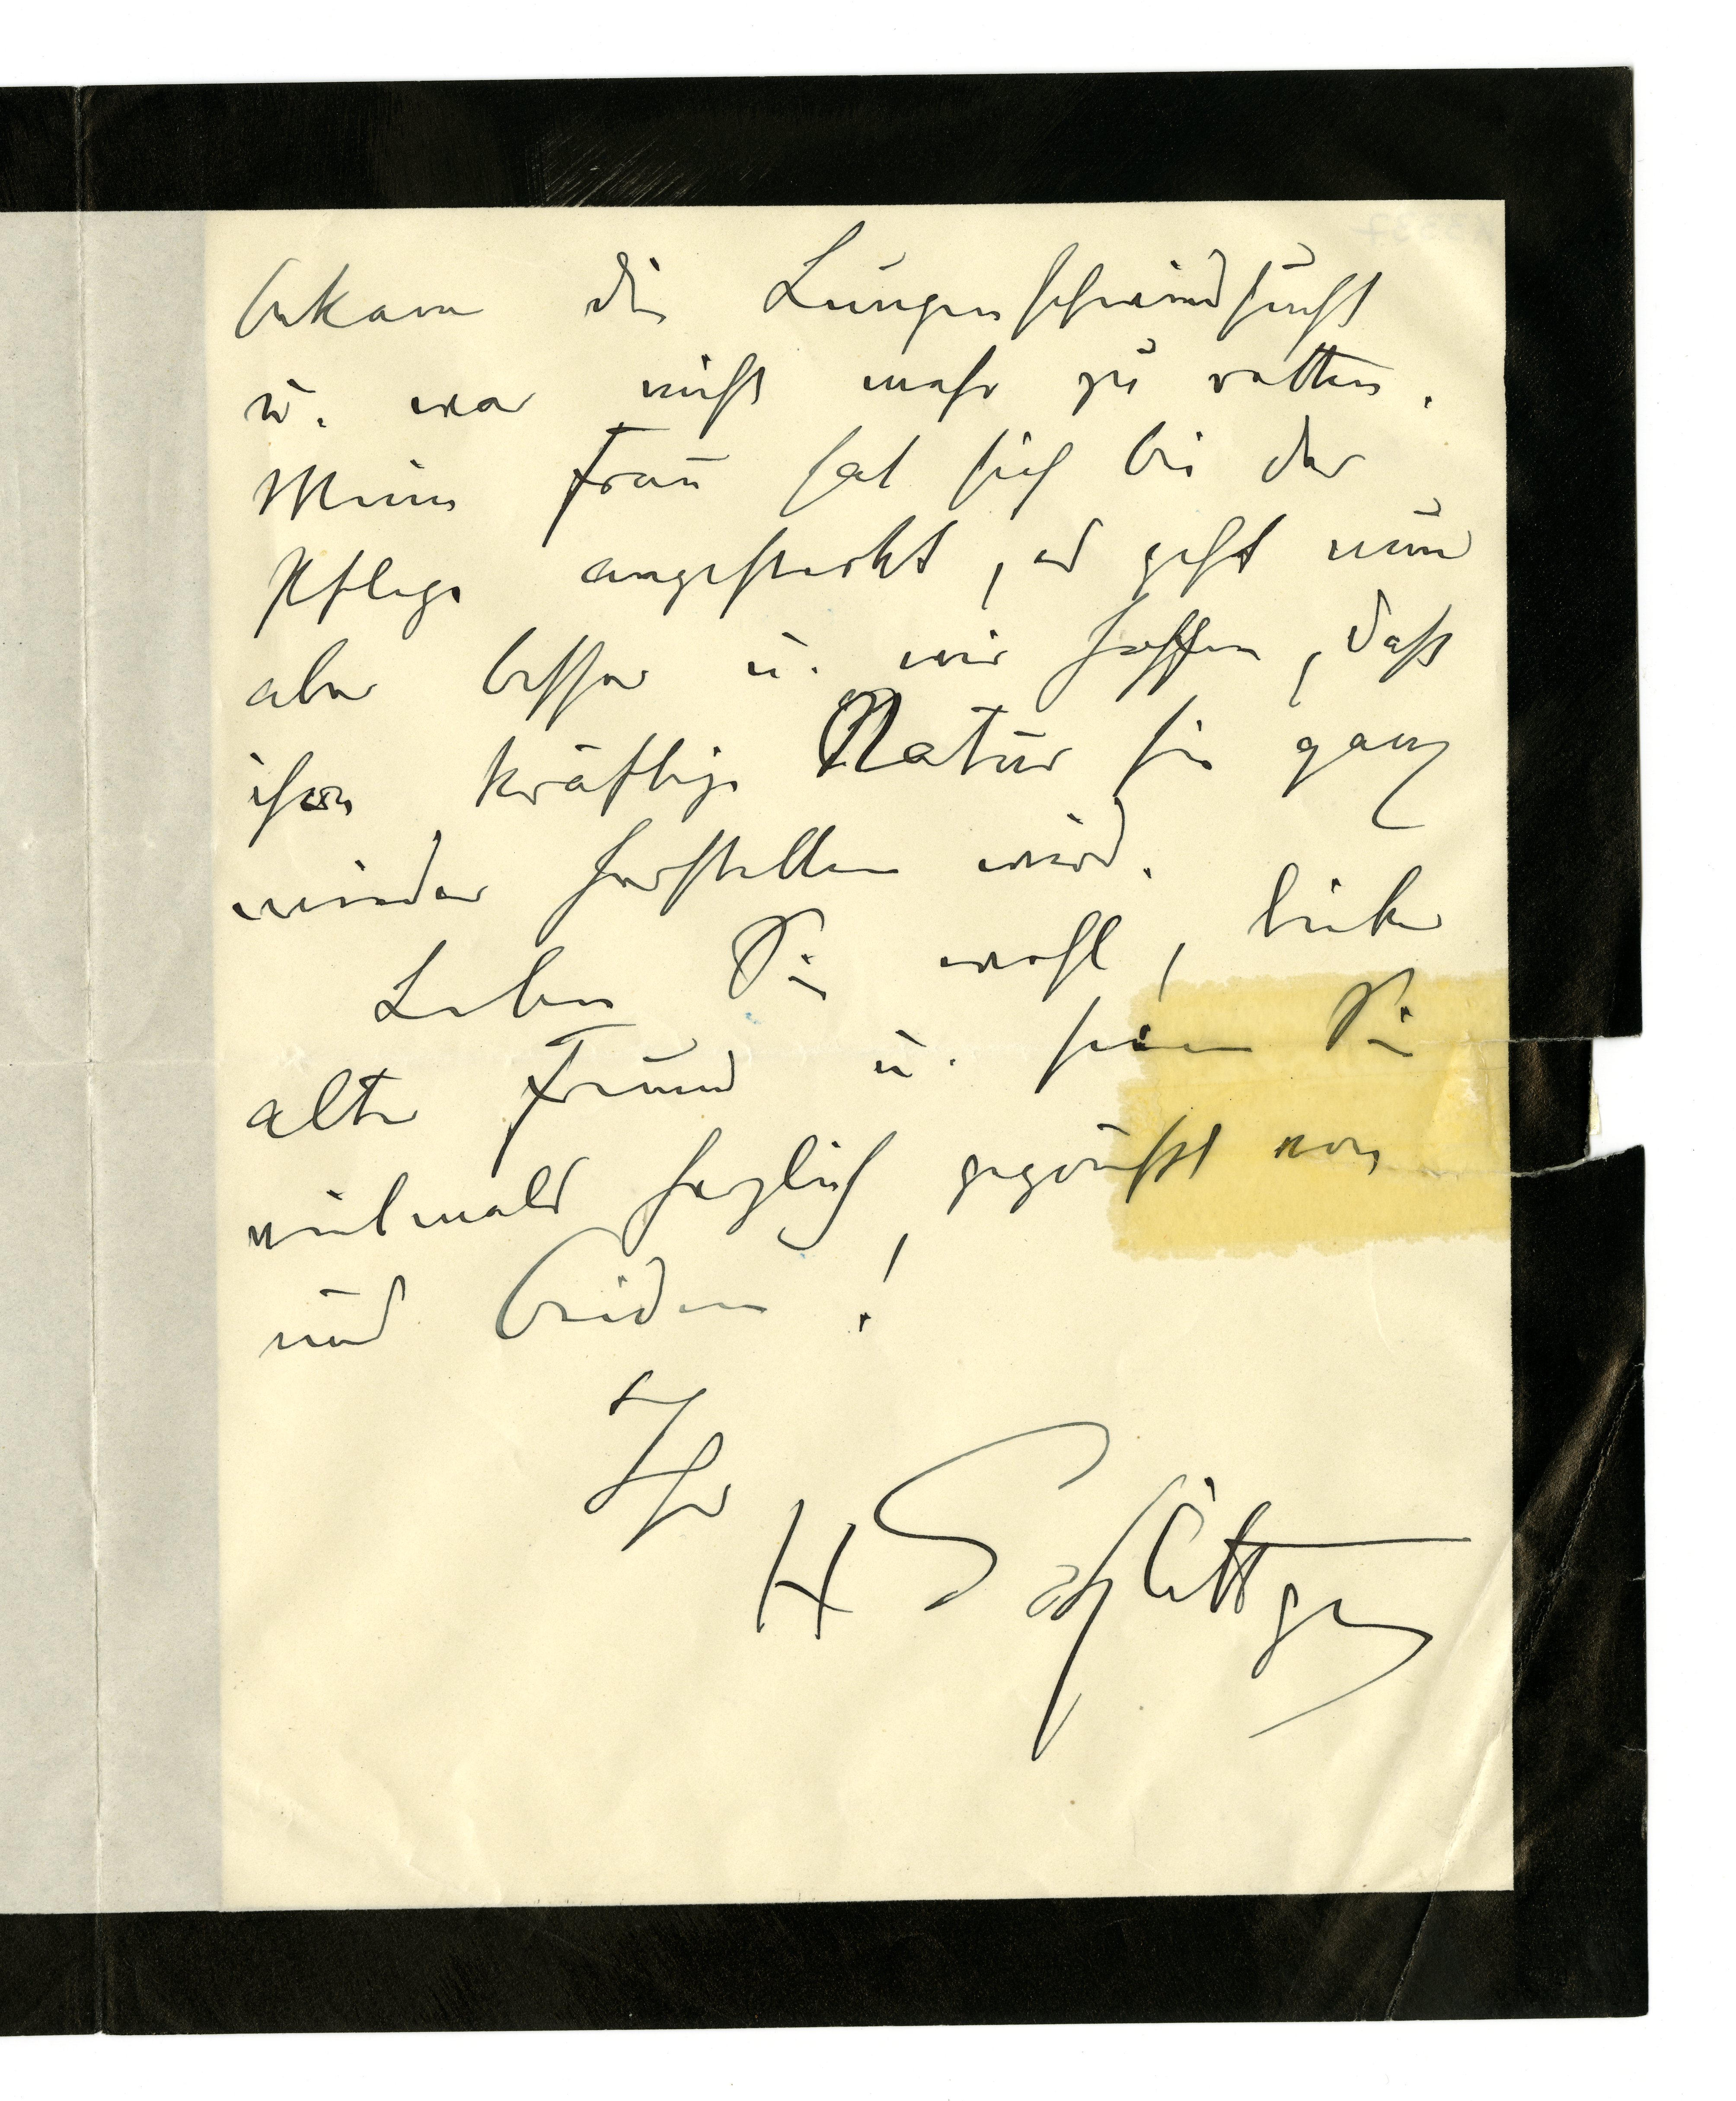 bekam die Lungenschwindsucht
u. war nicht mehr zu retten.
Meine Frau hat sich bei der
Pflege angesteckt, es geht nun
aber besser u. wir hoffen, daß
ihre kräftige Natur sie ganz
wieder herstellen wird.
Leben Sie wohl, lieber
alter Freund u. seien Sie
vielmals herzlich gegrüßt von
uns beiden!
Ihr
H Schlittgen